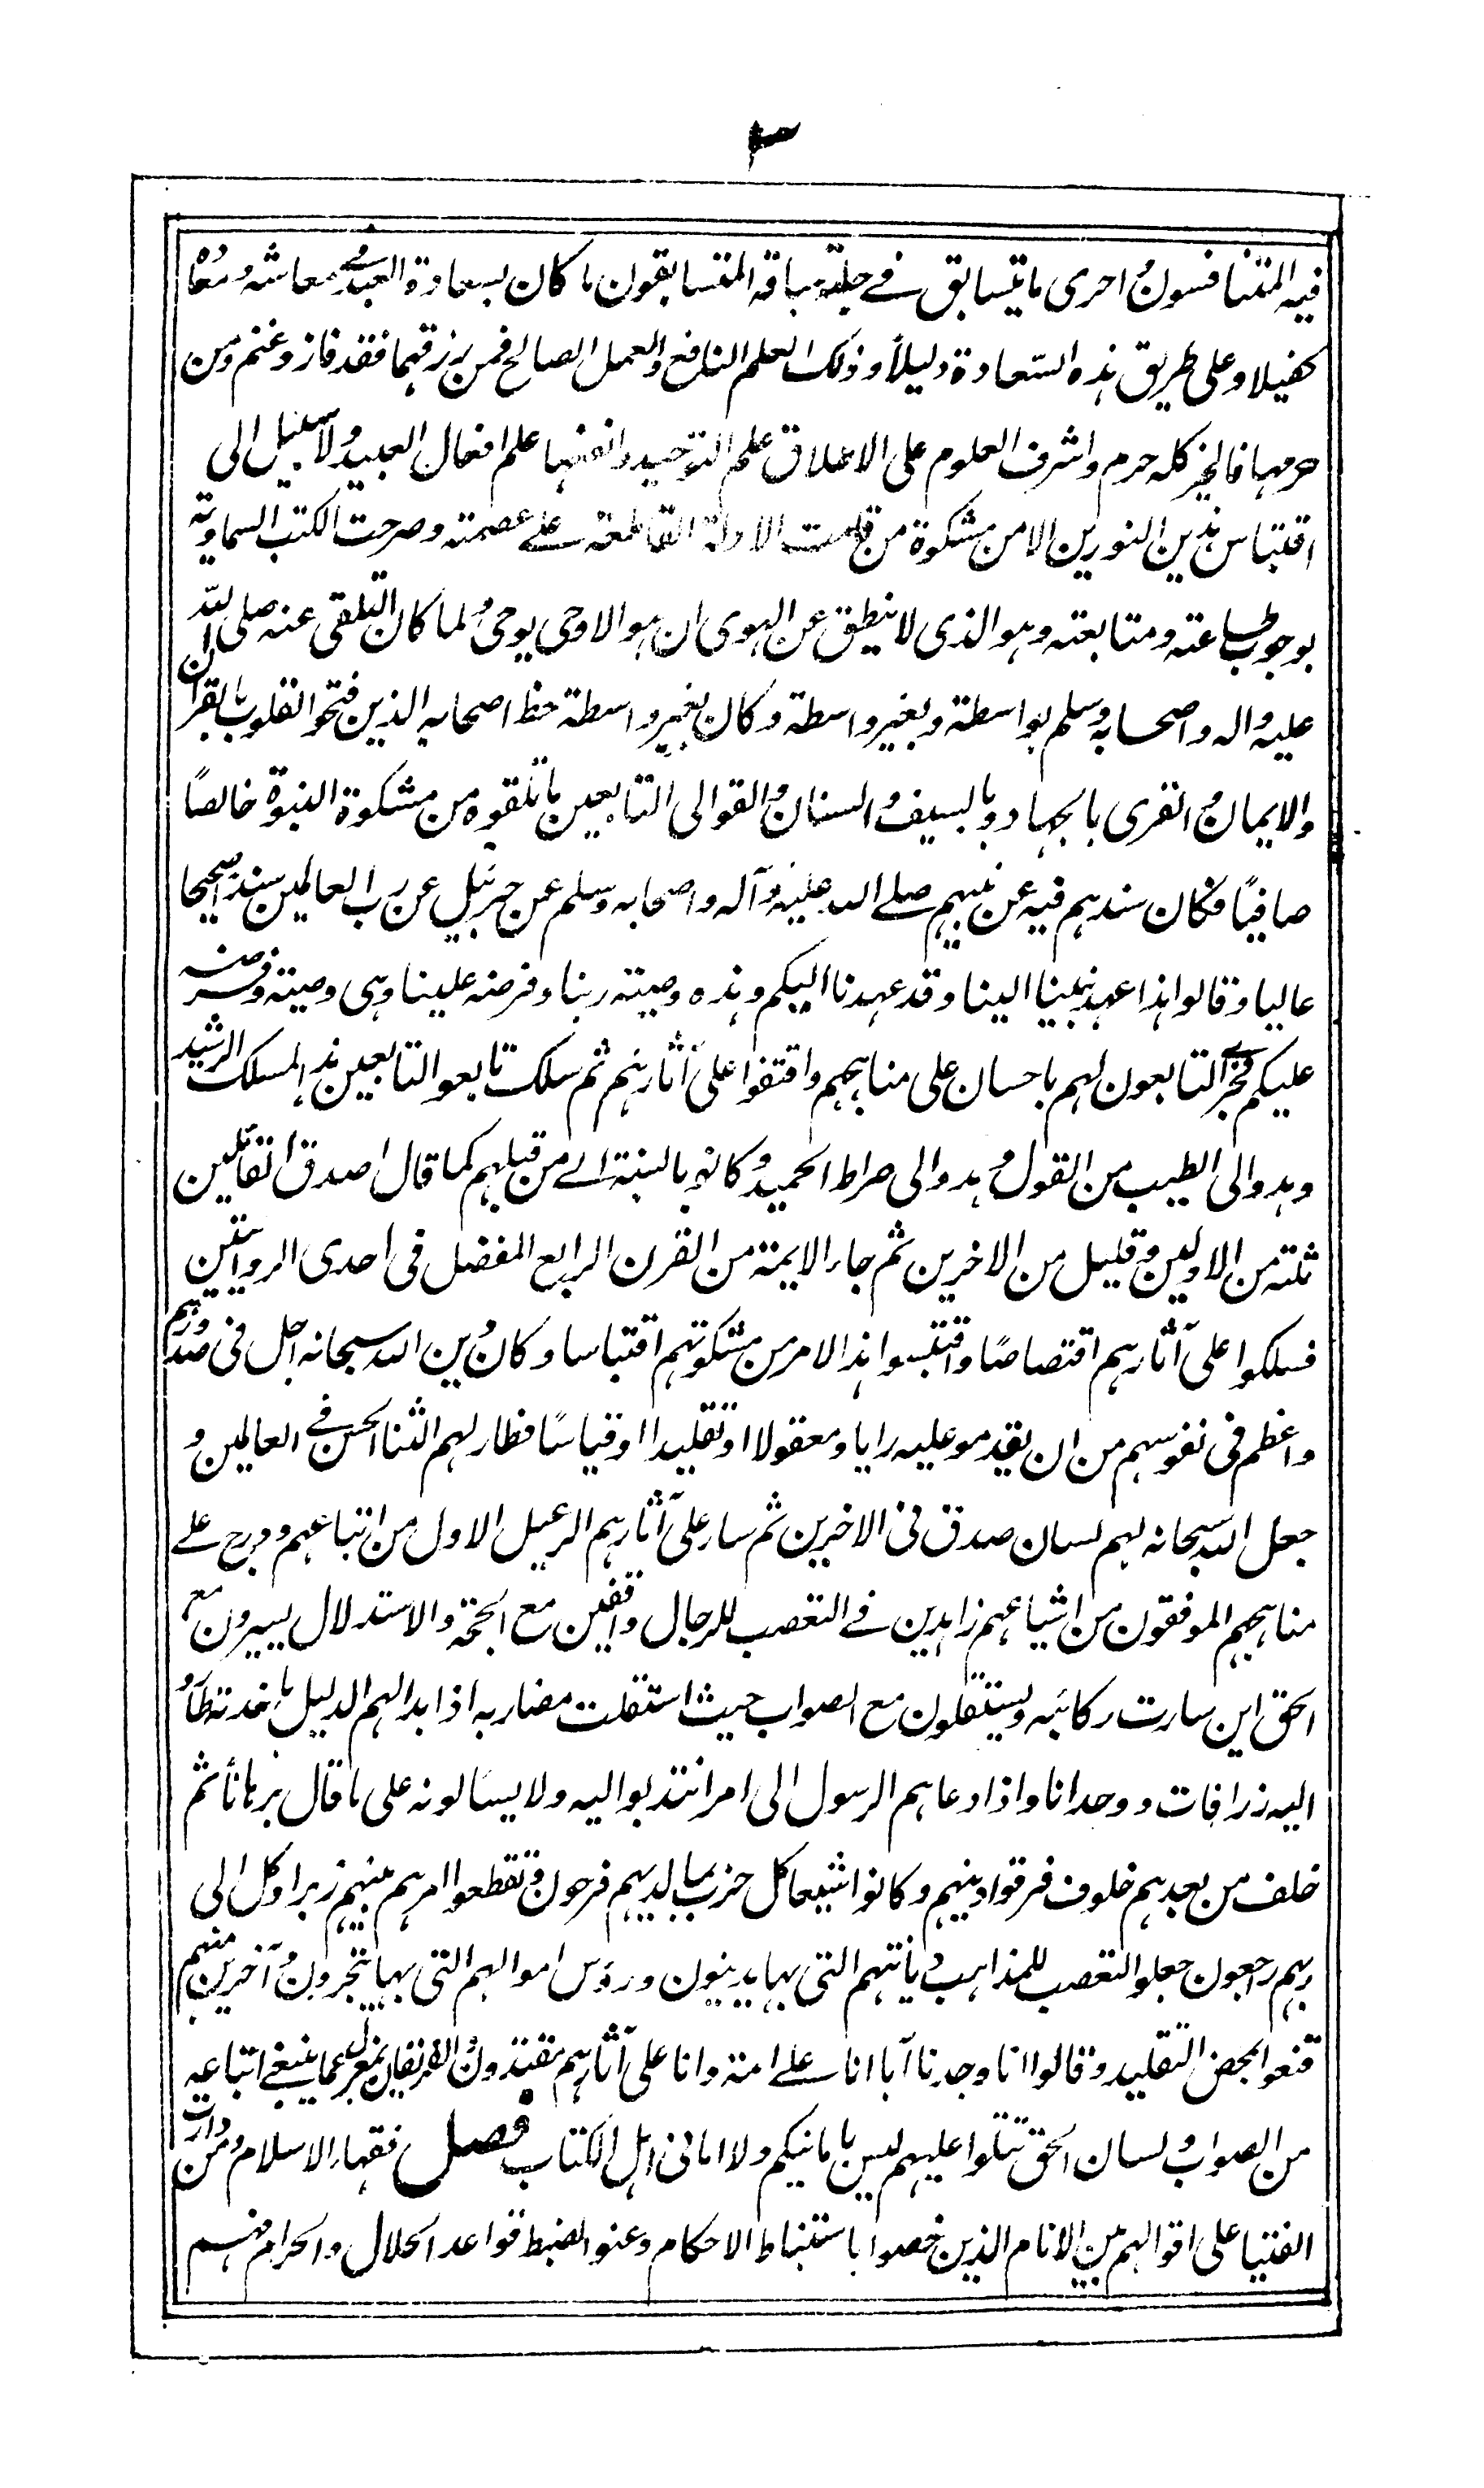 ٣
فيه المتنافسون واحرى ما يتسابق في حلبة سباقه المتسابقون ما كان بسعادة العبد في معاشه ومعاده
كفيلا وعلى طريق هذه السعادة دليلاً وذلك العلم النافع والعمل الصالح فمن رزقهما فقد فاز وغنم ومن
حرمهما فالخير كله حرم واشرف العلوم على الاطلاق علم التوحيد وانفعها علم افعال العبيد ولا سبيل الى
اقتباس هذين النورين الا من مشكوة من قامت الادلة القاطعة على عصمته وصرحت الكتب السماوية
بوجوب طاعته ومتابعته وهو الذى لا ينطق عن الهوى ان هو الا وحى يوحى ولما كان التلقى عنه صلى الله
عليه واله واصحابه وسلم بواسطة وبغير واسطة وكان بغير واسطة حظ اصحابه الذين فتحوا القلوب بالقران
والايمان والقرى بالجهاد وبالسيف والسنان والقوا الى التابعين ما تلقوه من مشكوة النبوة خالصًا
صافيًا فكان سندهم فيه عن نبيهم صلى الله عليه وآله واصحابه وسلم عن جبرئيل عن رب العالمين سندا صحيحا
عاليا وقالوا هذا عهد نبينا الينا وقد عهدنا اليكم وهذه وصيته ربنا وفرضه علينا وهى وصيته وفرضه
عليكم فجرى التابعون لهم باحسان على مناهجهم واقتفوا على آثارهم ثم سلك تابعو التابعين هذا المسلك الرشيد
وهدوا الى الطيب من القول وهدوا الى صراط الحميد وكانوا بالنسبة الى من قبلهم كما قال اصدق القائلين
ثلة من الاولين وقليل من الاخرين ثم جاء الايمة من القرن الرابع المفضل فى احدى الروايتين
فسلكوا على آثارهم اقتصاصًا واقتبسوا هذا الامر من مشكوتهم اقتباسا وكان دين الله سبحانه اجل فى صدورهم
واعظم فى نفوسهم من ان يقدموا عليه رايا ومعقولا او تقليدا او قياسًا فطار لهم الثنا الحسن في العالمين و
جعل الله سبحانه لهم لسان صدق فى الاخرين ثم سار على آثارهم الرعيل الاول من اتباعهم ودرج على
مناهجهم الموفقون من اشياعهم زاهدين في التعصب للرجال واقفين مع الحجة والاستدلال يسيرون مع
الحق اين سارت ركائبه ويستقلون مع الصواب حيث استقلت مضاربه اذا بدا لهم الدليل باخدته طاروا
اليه زرافات و وحدانا واذا دعاهم الرسول الى امر انتدبوا اليه ولا يسألونه على ما قال برهانًا ثم
خلف من بعدهم خلوف فرقوا دينهم وكانوا شيعا كل حزب بما لديهم فرحون وتقطعوا امرهم بينهم زبرا وكل الى
ربهم راجعون جعلوا التعصب للمذاهب ديانتهم التى بها يدينون ورؤس اموالهم التى بها يتجرون وآخرين منهم
قنعوا بمحض التقليد وقالوا انا وجدنا آباانا على امة وانا على آثارهم مقتدون والفريقان بمعزل عما ينبغي اتباعه
من الصواب ولسان الحق يتلوا عليهم ليس بامانيكم ولا امانى اهل الكتاب فصل فقهاء الاسلام ومن دارت
الفتيا على اقوالهم بين الانام الذين خصوا باستنباط الاحكام وعنوا بضبط قواعد الحلال والحرام فهم